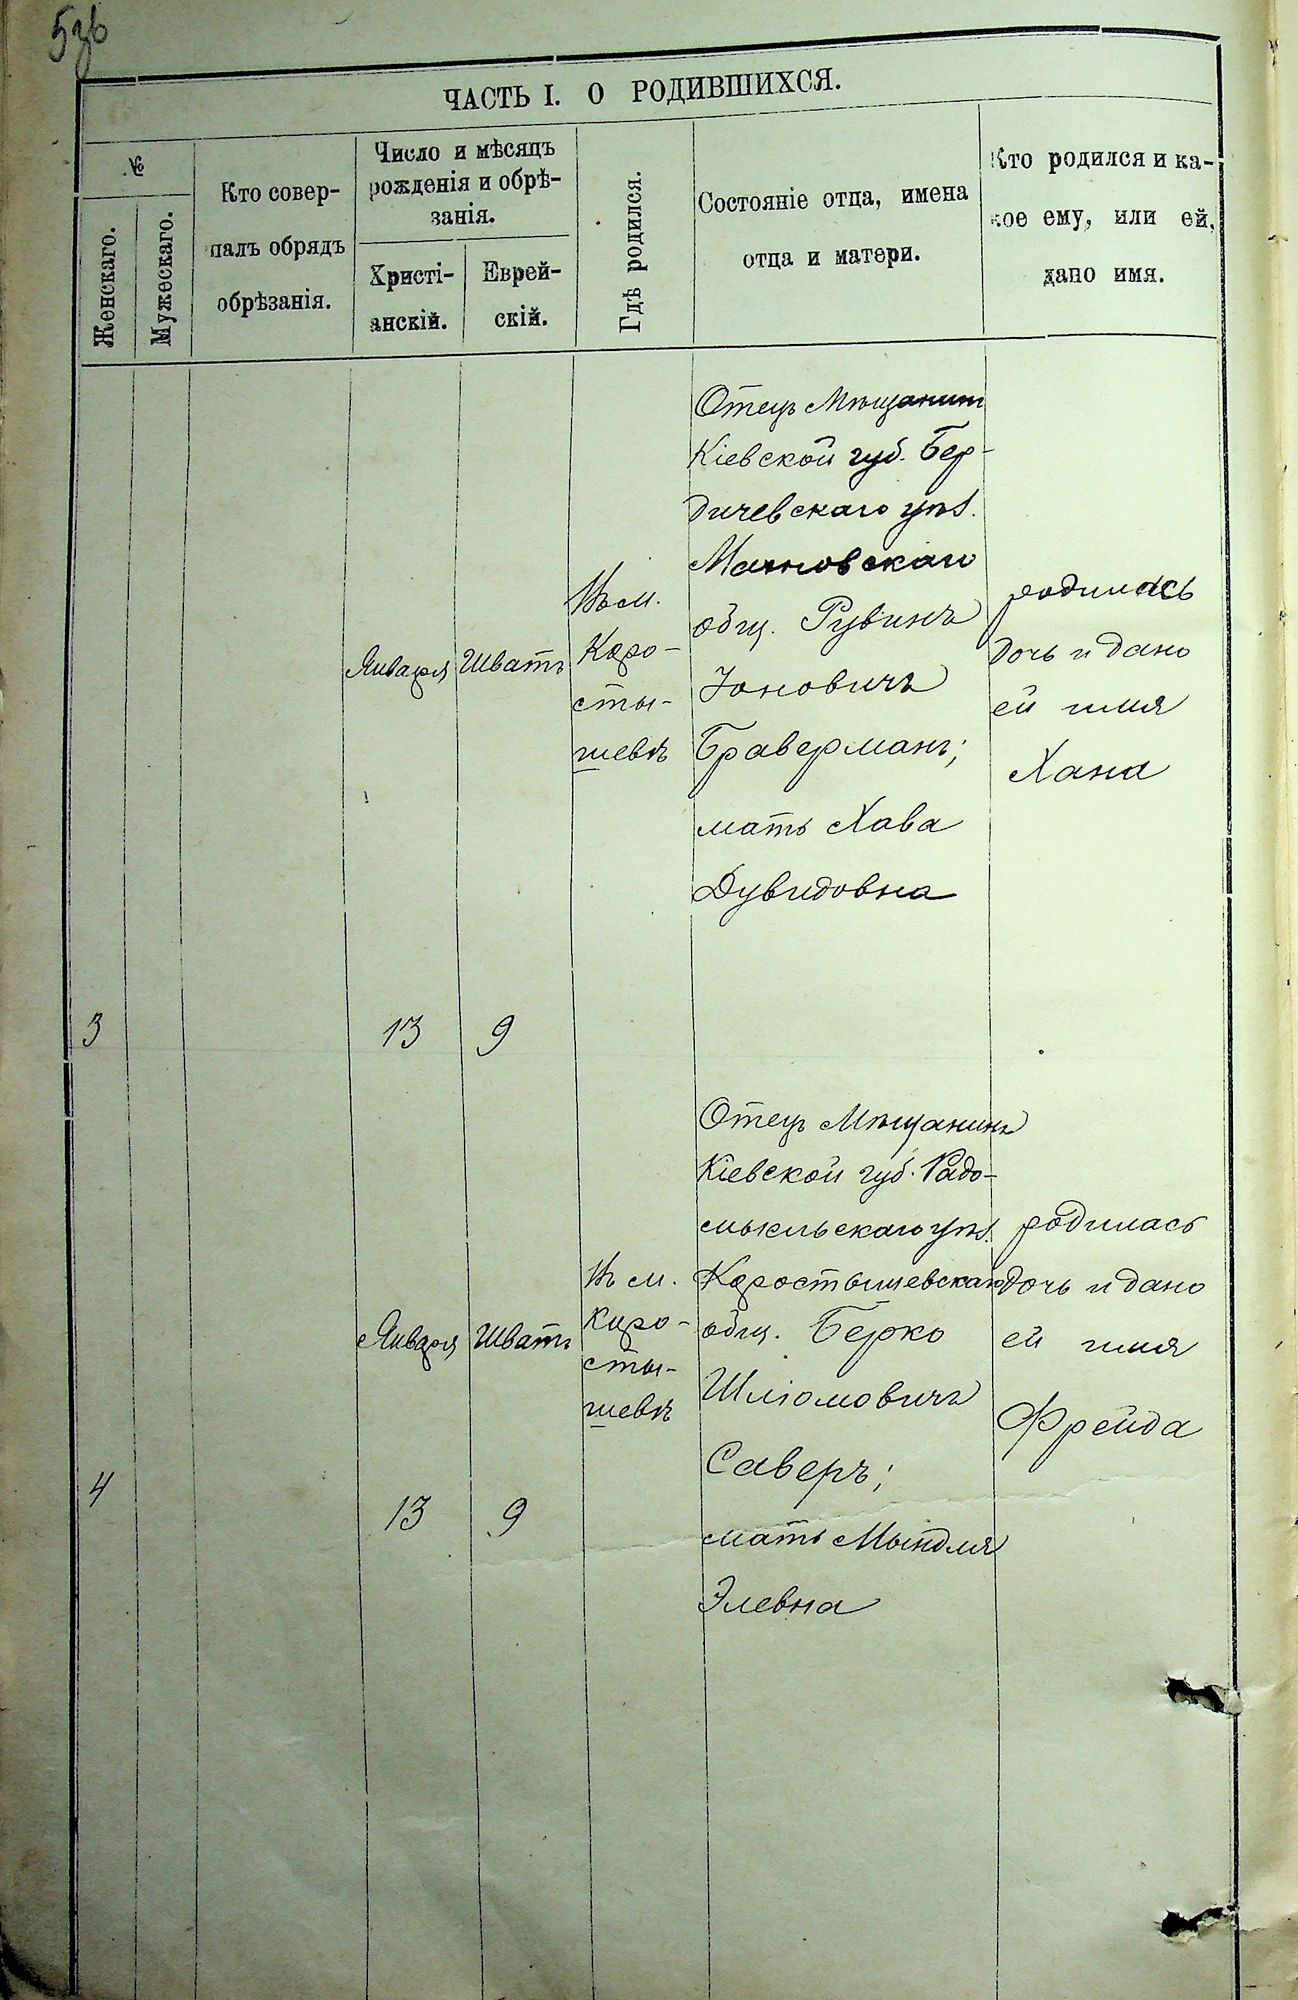 ЧАСТЬ I. О РОДИВШИХСЯ.
№
Женскаго.
Мужескаго.
Кто совер-
шалъ обрядъ
обрѣзанія.
Число и мѣсяцъ
рожденія и обрѣ-
занія.
Христі-
анскій.
Еврей-
скій.
Гдѣ родился.
Состояніе отца, имена
отца и матери.
Кто родился и ка-
кое ему, или ей,
дано имя.
3
Января
13
Шватъ
9
Въ м.
Коро-
сты-
шевѣ
Отецъ Мѣщанинъ
Кіевской губ. Бер-
дичевскаго уѣз.
Махновскаго
общ. Рувинъ
Іоновичъ
Браверманъ;
мать Хава
Дувидовна
родилась
дочь и дано
ей имя
Хана
4
Января
13
Шватъ
9
Въ м.
Коро-
сты-
шевѣ
Отецъ Мѣщанинъ
Кіевской губ. Радо-
мысльскаго уѣз.
Коростышевскаго
общ. Берко
Шліомовичъ
Саверъ;
мать Мындля
Элевна
родилась
дочь и дано
ей имя
Фрейда